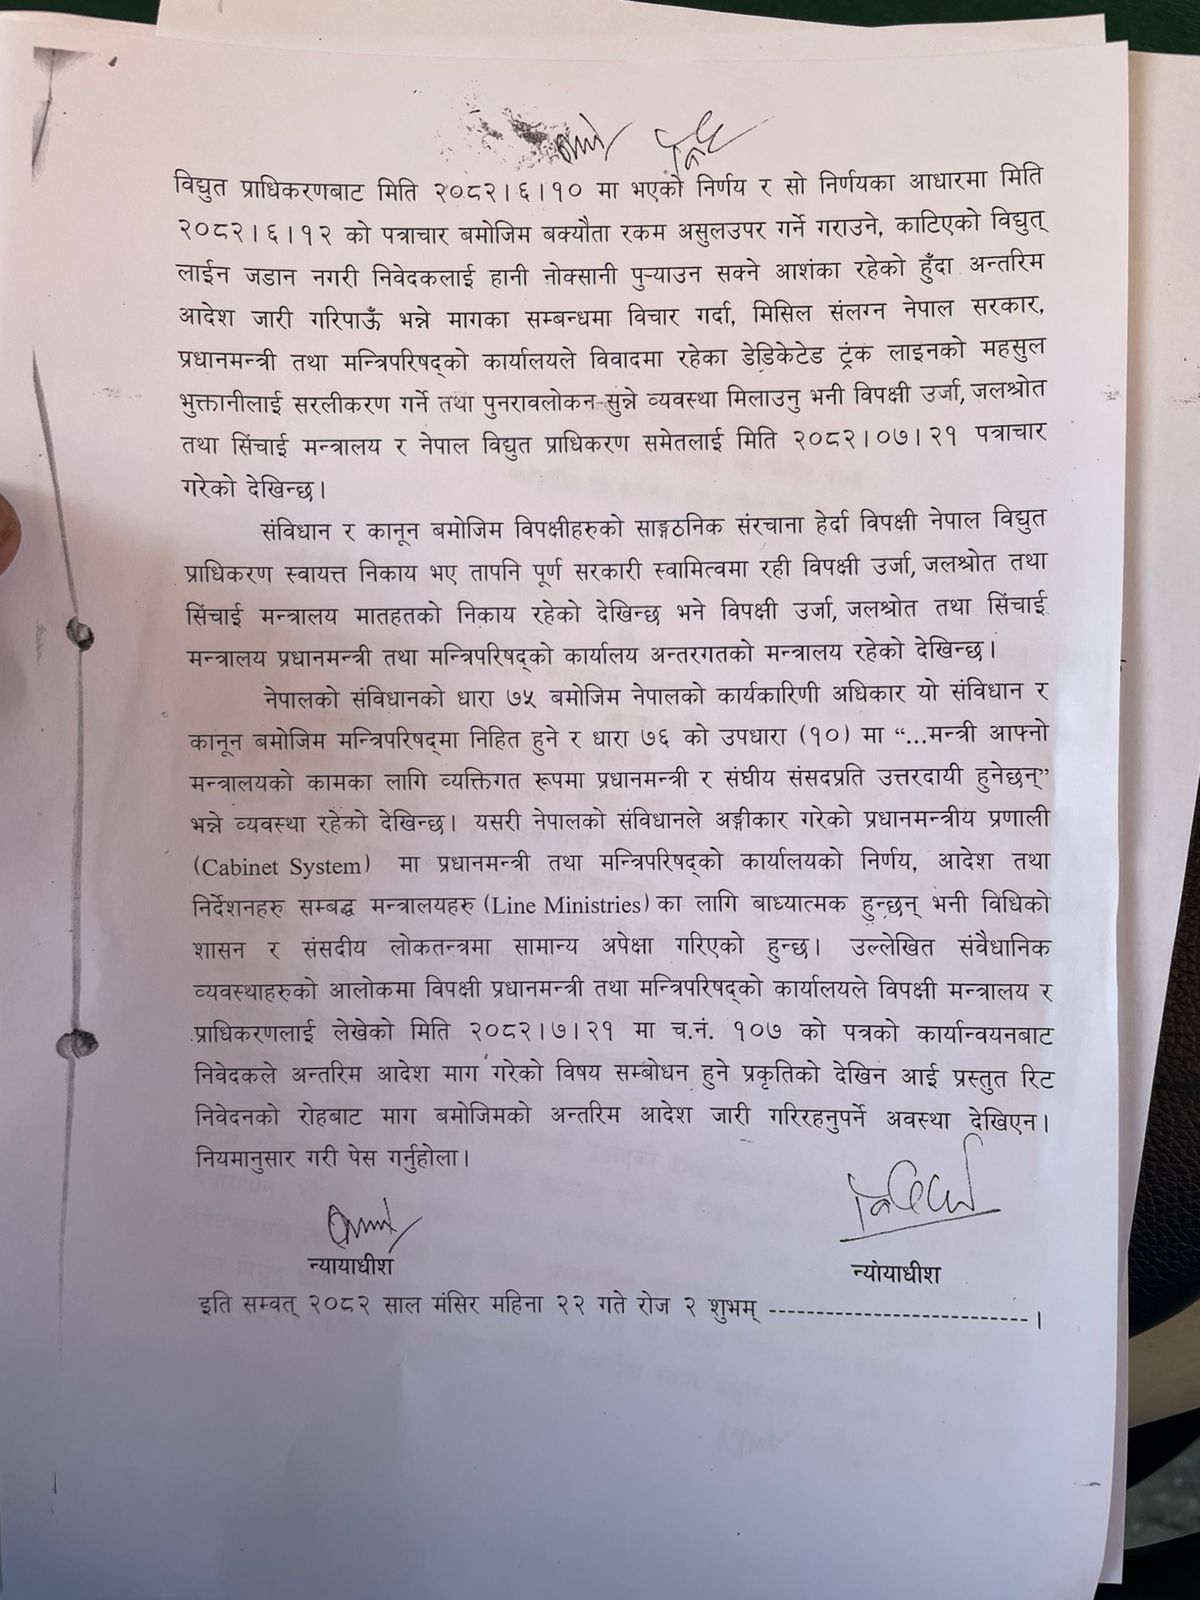 विद्युत प्राधिकरणबाट मिति २०८२।६।१० मा भएको निर्णय र सो निर्णयका आधारमा मिति
२०८२।६।१२ को पत्राचार बमोजिम बक्यौता रकम असुलउपर गर्ने गराउने, काटिएको विद्युत्
लाईन जडान नगरी निवेदकलाई हानी नोक्सानी पुऱ्याउन सक्ने आशंका रहेको हुँदा अन्तरिम
आदेश जारी गरिपाऊँ भन्ने मागका सम्बन्धमा विचार गर्दा, मिसिल संलग्न नेपाल सरकार,
प्रधानमन्त्री तथा मन्त्रिपरिषद्को कार्यालयले विवादमा रहेका डेडिकेटेड ट्रंक लाइनको महसुल
भुक्तानीलाई सरलीकरण गर्ने तथा पुनरावलोकन सुन्ने व्यवस्था मिलाउनु भनी विपक्षी उर्जा, जलश्रोत
तथा सिंचाई मन्त्रालय र नेपाल विद्युत प्राधिकरण समेतलाई मिति २०८२।०७।२१ पत्राचार
गरेको देखिन्छ।
संविधान र कानून बमोजिम विपक्षीहरुको साङ्गठनिक संरचना हेर्दा विपक्षी नेपाल विद्युत
प्राधिकरण स्वायत्त निकाय भए तापनि पूर्ण सरकारी स्वामित्वमा रही विपक्षी उर्जा, जलश्रोत तथा
सिंचाई मन्त्रालय मातहतको निकाय रहेको देखिन्छ भने विपक्षी उर्जा, जलश्रोत तथा सिंचाई
मन्त्रालय प्रधानमन्त्री तथा मन्त्रिपरिषद्को कार्यालय अन्तरगतको मन्त्रालय रहेको देखिन्छ।
नेपालको संविधानको धारा ७५ बमोजिम नेपालको कार्यकारिणी अधिकार यो संविधान र
कानून बमोजिम मन्त्रिपरिषद्मा निहित हुने र धारा ७६ को उपधारा (१०) मा “...मन्त्री आफ्नो
मन्त्रालयको कामका लागि व्यक्तिगत रूपमा प्रधानमन्त्री र संघीय संसदप्रति उत्तरदायी हुनेछन्”
भन्ने व्यवस्था रहेको देखिन्छ। यसरी नेपालको संविधानले अङ्गीकार गरेको प्रधानमन्त्रीय प्रणाली
(Cabinet System) मा प्रधानमन्त्री तथा मन्त्रिपरिषद्को कार्यालयको निर्णय, आदेश तथा
निर्देशनहरु सम्बद्ध मन्त्रालयहरु (Line Ministries) का लागि बाध्यात्मक हुन्छन् भनी विधिको
शासन र संसदीय लोकतन्त्रमा सामान्य अपेक्षा गरिएको हुन्छ। उल्लेखित संवैधानिक
व्यवस्थाहरुको आलोकमा विपक्षी प्रधानमन्त्री तथा मन्त्रिपरिषद्को कार्यालयले विपक्षी मन्त्रालय र
प्राधिकरणलाई लेखेको मिति २०८२।७।२१ मा च.नं. १०७ को पत्रको कार्यान्वयनबाट
निवेदकले अन्तरिम आदेश माग गरेको विषय सम्बोधन हुने प्रकृतिको देखिन आई प्रस्तुत रिट
निवेदनको रोहबाट माग बमोजिमको अन्तरिम आदेश जारी गरिरहनुपर्ने अवस्था देखिएन।
नियमानुसार गरी पेस गर्नुहोला।
न्यायाधीश
न्यायाधीश
इति सम्वत् २०८२ साल मंसिर महिना २२ गते रोज २ शुभम् ---------------------------।